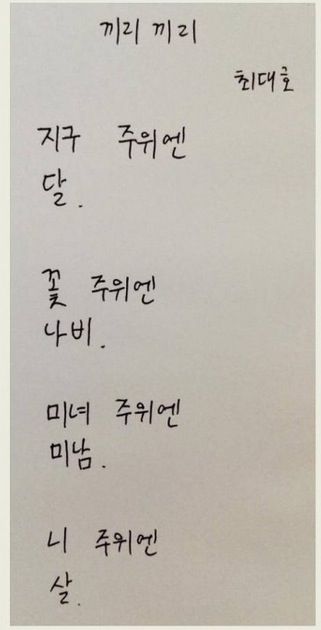 끼리 끼리
최대호
지구 주위엔
달.
꽃 주위엔
나비.
미녀 주위엔
미남.
니 주위엔
살.